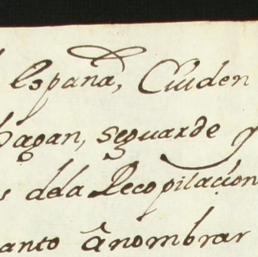 España, Cuiden
hagan, seguarde y
dela Recopilacion
anto ânombrar